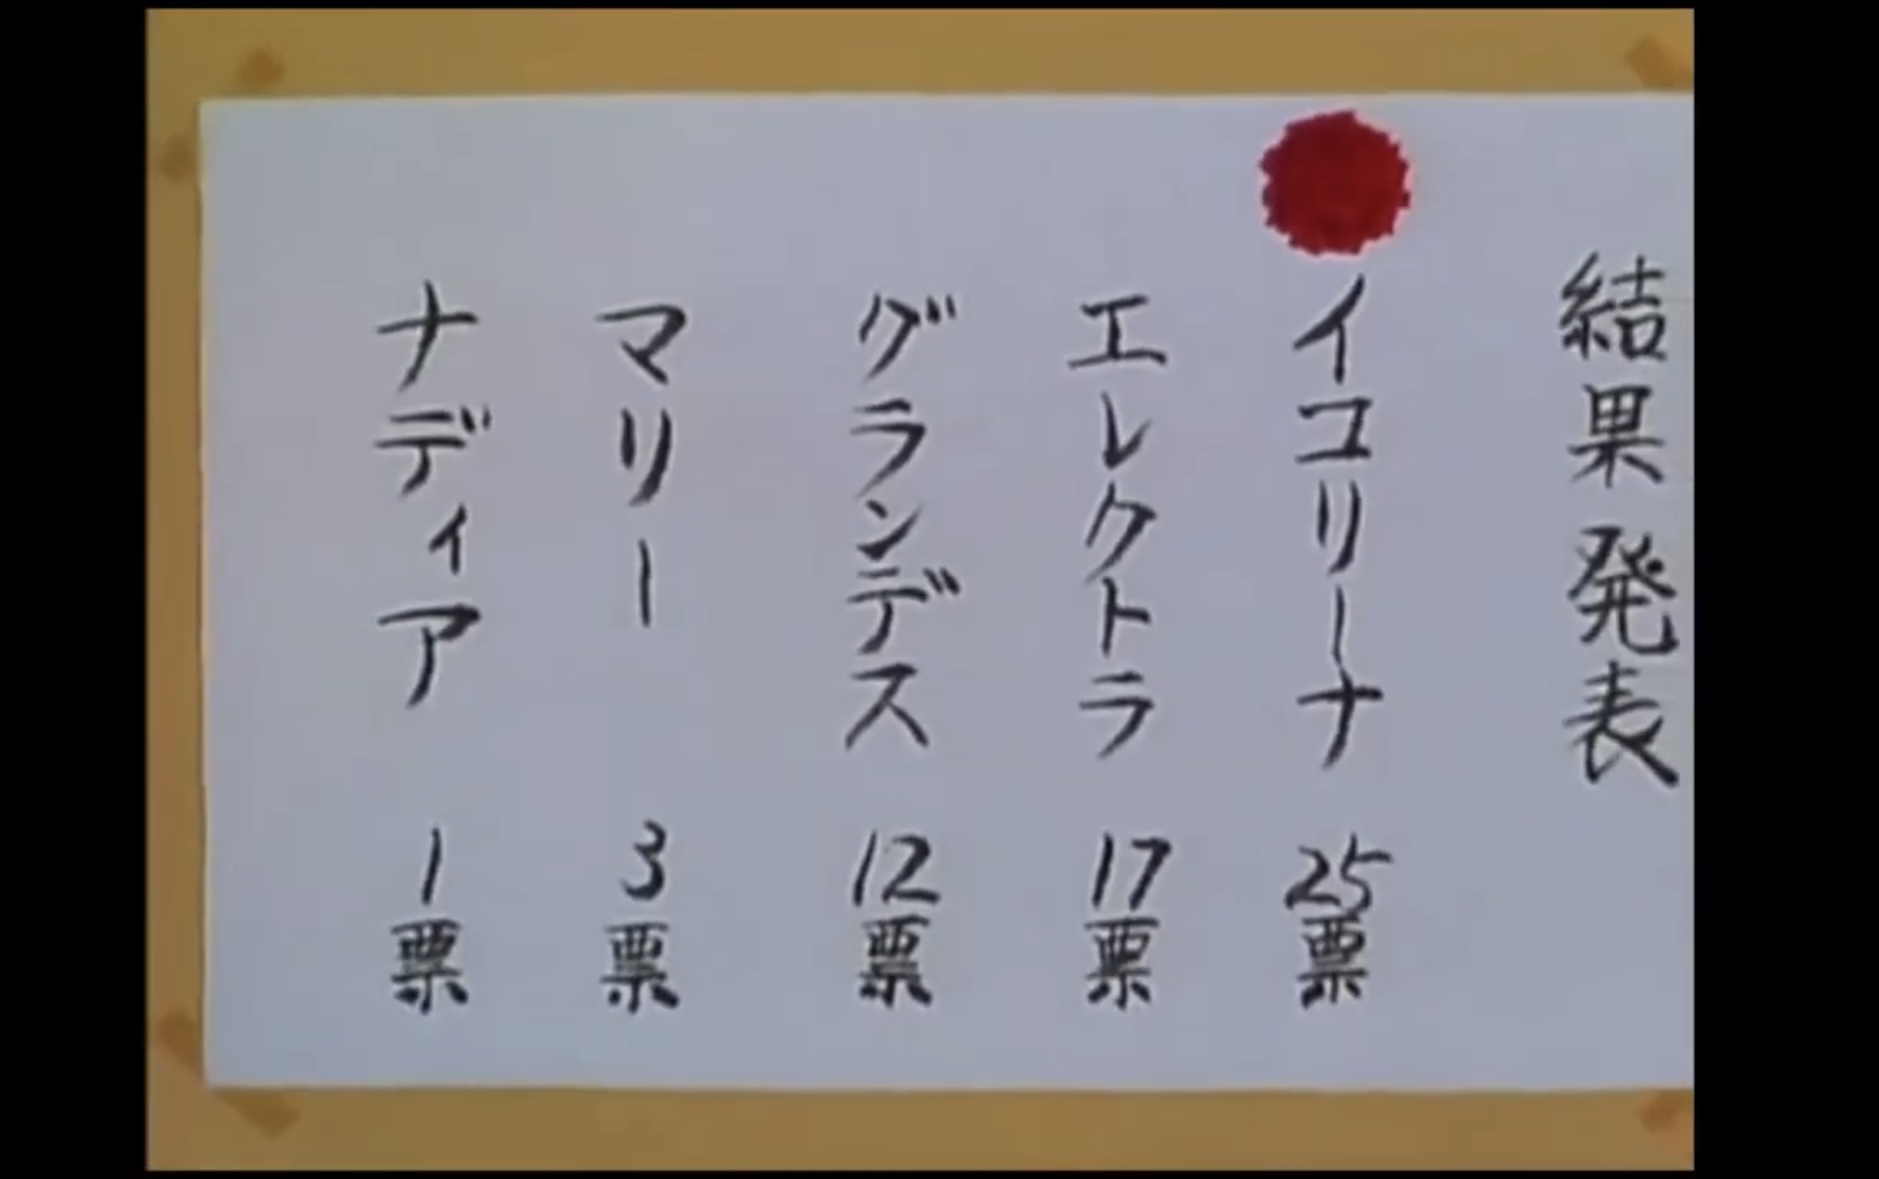 結果発表
イコリーナ 25票
エレクトラ 17票
グランデス 12票
マリー 3票
ナディア 1票